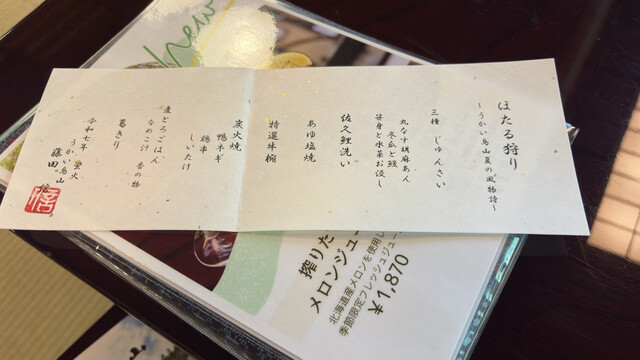 ほたる狩り
～うかい鳥山夏の風物詩～
三種 じゅんさい
丸なす胡麻あん
冬瓜と鰻
笹身と水菜お浸し
佐久鯉洗い
あゆ塩焼
特選牛椀
炭火焼
鴨ネギ
鶏串
しいたけ
麦とろごはん
なめこ汁 香の物
葛きり
令和七年 蛍火
うかい鳥山
藤田
new
搾りた
メロンジュー
北海道産メロンを使用し
季節限定フレッシュジュー
¥1,870